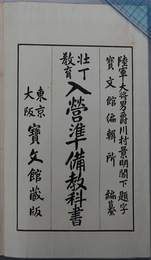 陸軍大将男爵川村景明閣下題字
寶文館編輯所編纂
壯丁教育
入營準備教科書
東京
大阪
寶文館藏版